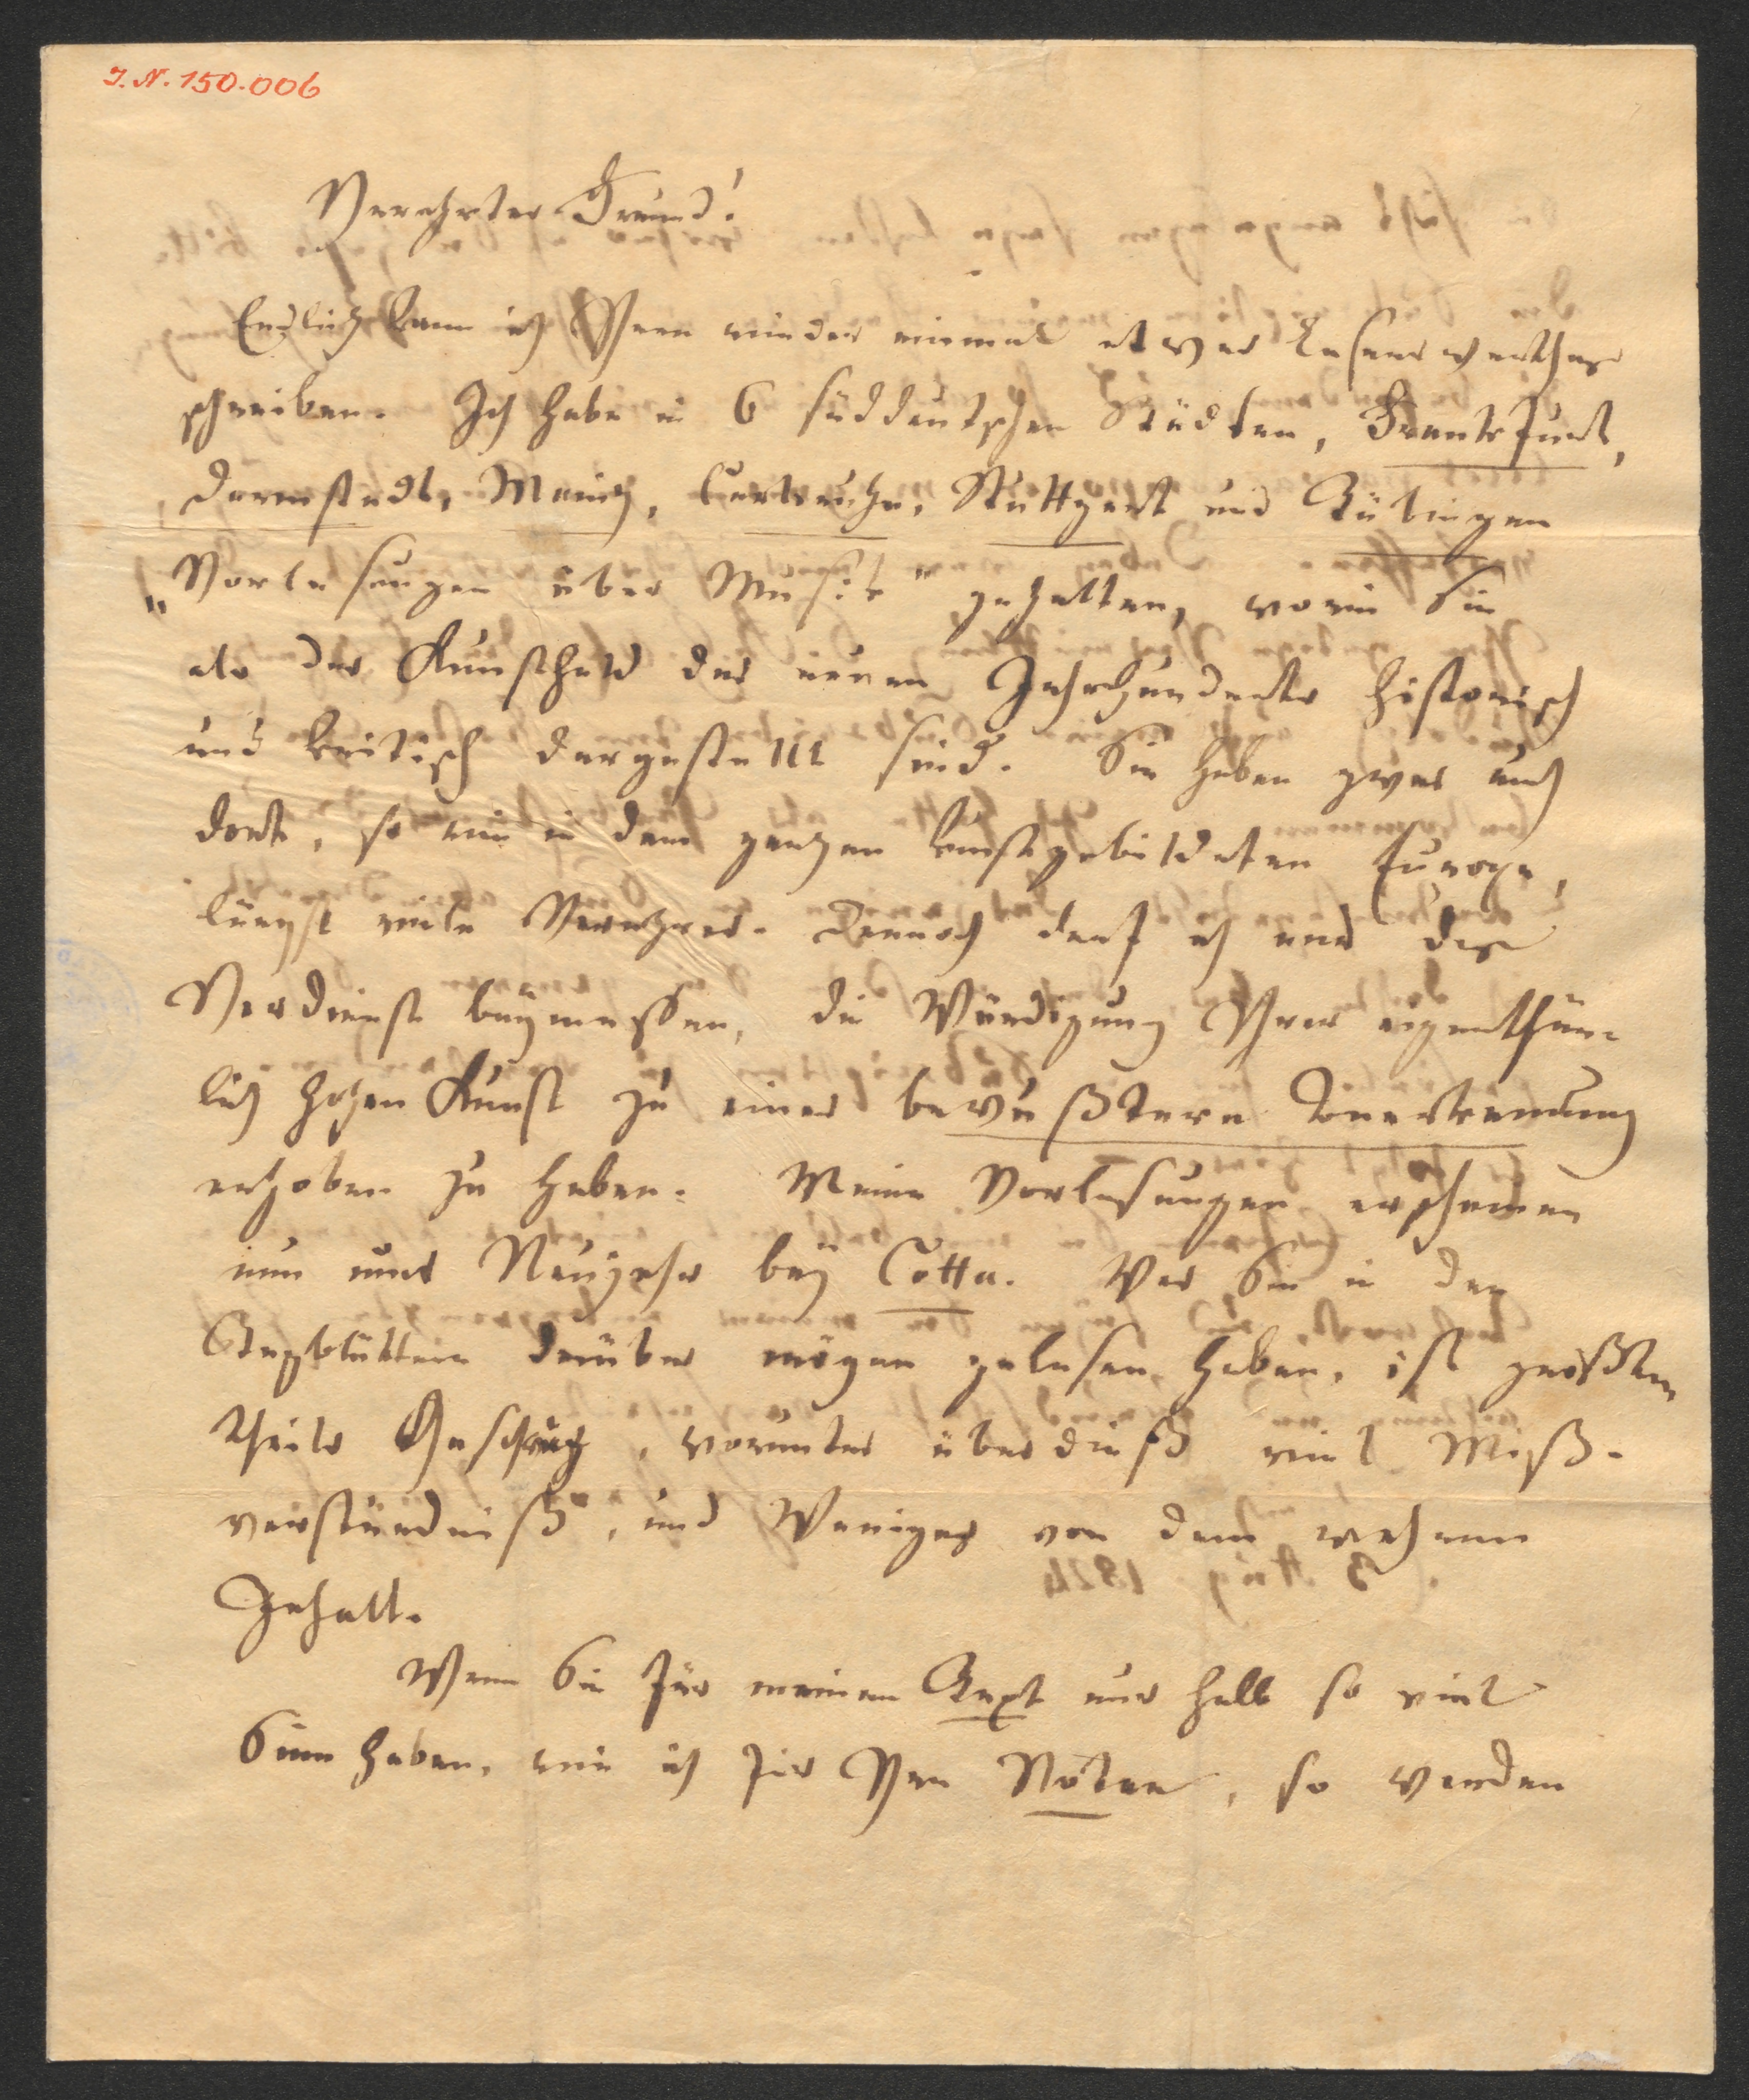 I. N. 150.006
Verehrter Freund!
Endlich kann ich Ihnen wieder einmal etwas Lesenswerthes
schreiben. Ich habe in 6 süddeutschen Städten, Frankfurt,
Darmstadt, Mainz, Carlsruhe, Stuttgart und Tübingen
„Vorlesungen über Musik“ gehalten, worin Sie
als der Kunstheld des neuen Jahrhunderts historisch
und kritisch dargestellt sind. Sie haben zwar auch
dort, so wie in dem ganzen kunstgebildeten Europa,
längst viele Verehrer. Dennoch darf ich mir das
Verdienst beymessen, die Würdigung Ihrer eigenthüm-
lich hohen Kunst zu einer bewußtern Anerkennung
erhoben zu haben. Meine Vorlesungen erscheinen
nun ums Neujahr bey Cotta. Was Sie in den
Tagblättern darüber mögen gelesen haben, ist größten
theils Geschwäz, worunter überdieß viel Miß-
verständniß, und Weniges von dem wahren
Inhalt.
Wenn Sie für meinen Text nur halb so viel
Sinn haben, wie ich für Ihre Noten, so werden